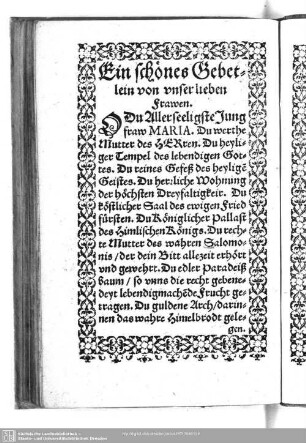 Ein schönes Gebet-
lein von vnser lieben
Frawen.
O Du Allerseeligste Jung
fraw MARIA. Du werthe
Mutter des HERren. Du heyli-
ger Tempel des lebendigen Got-
tes. Du reines Gefeß des heyligē
Geistes. Du herꝛliche Wohnung
der höchsten Dreyfaltigkeit. Du
köstlicher Saal des ewigen Fried
fürsten. Du Königlicher Pallast
des Himlischen Königs. Du rech-
te Mutter des wahren Salomo-
nis / der dein Bitt allezeit erhört
vnd gewehrt. Du edler Paradeiß
baum / so vnns die recht gebene-
deyt lebendigmachēde Frucht ge-
tragen. Du guldene Arch / darin-
nen das wahre Himelbrodt gele-
gen.